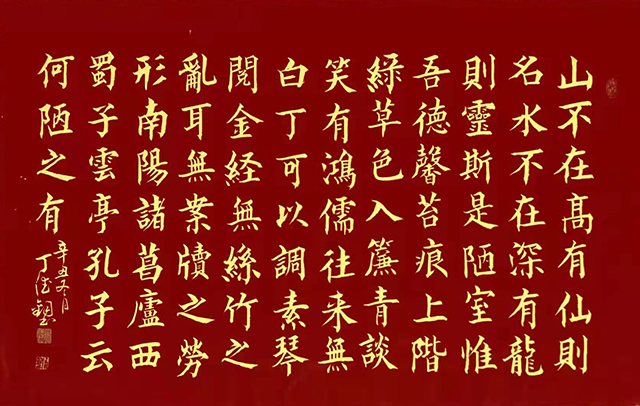 山不在髙有仙則
名水不在深有龍
則靈斯是陋室惟
吾德馨苔痕上階
綠草色入簾青談
笑有鴻儒往来無
白丁可以調素琴
閱金経無絲竹之
亂耳無案牘之勞
形南陽諸葛廬西
蜀子雲亭孔子云
何陋之有
辛丑冬月